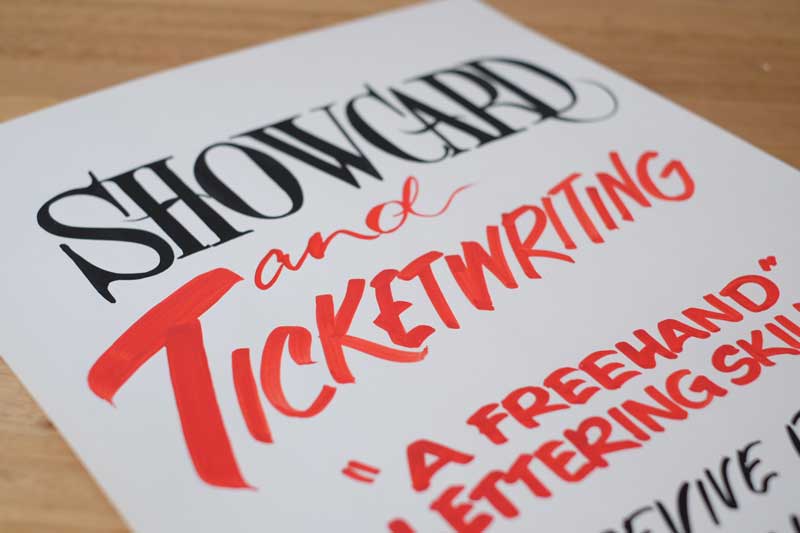 SHOWCARD
and
TICKETWRITING
"A FREEHAND"
LETTERING
REVIVE